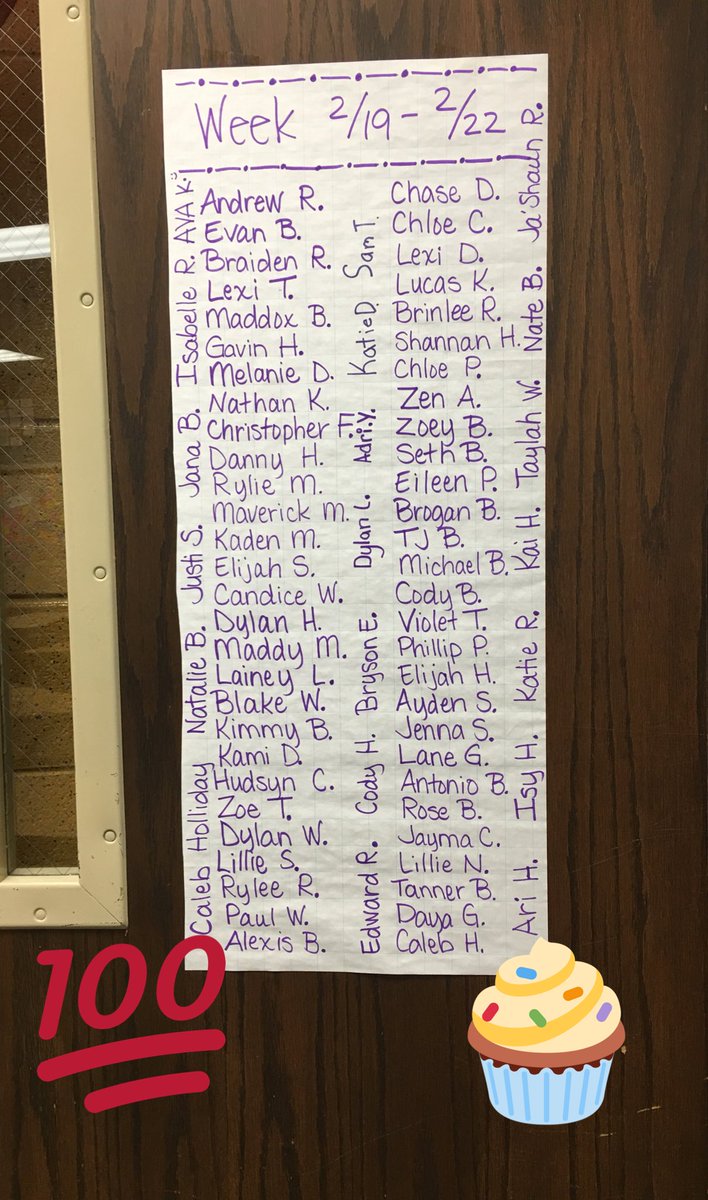 Week 2/19 - 2/22
Andrew R.
Evan B.
Braiden R.
Lexi T.
Maddox B.
Gavin H.
Melanie D.
Nathan K.
Christopher F.
Danny H.
Rylie M.
Maverick M.
Kaden M.
Elijah S.
Candice W.
Dylan H.
Maddy M.
Lainey L.
Blake W.
Kimmy B.
Kami D.
Hudsyn C.
Zoe T.
Dylan W.
Lillie S.
Rylee R.
Paul W.
Alexis B.
Chase D.
Chloe C.
Lexi D.
Lucas K.
Brinlee R.
Shannan H.
Chloe P.
Zen A.
Zoey B.
Seth B.
Eileen P.
Brogan B.
TJ B.
Michael B.
Cody B.
Violet T.
Phillip P.
Elijah H.
Ayden S.
Jenna S.
Lane G.
Antonio B.
Rose B.
Jayma C.
Lillie N.
Tanner B.
Daya G.
Caleb H.
Caleb Holliday Natalie B. Justi S. Jana B. Isabelle R. AVA K.
Edward R. Cody H. Bryson E. Dylan L. Adri.Y. Katie D. Sam T.
Ari H. Isy H. Katie R. Kai H. Taylah W. Nate B. Ja'Shaun R.
100